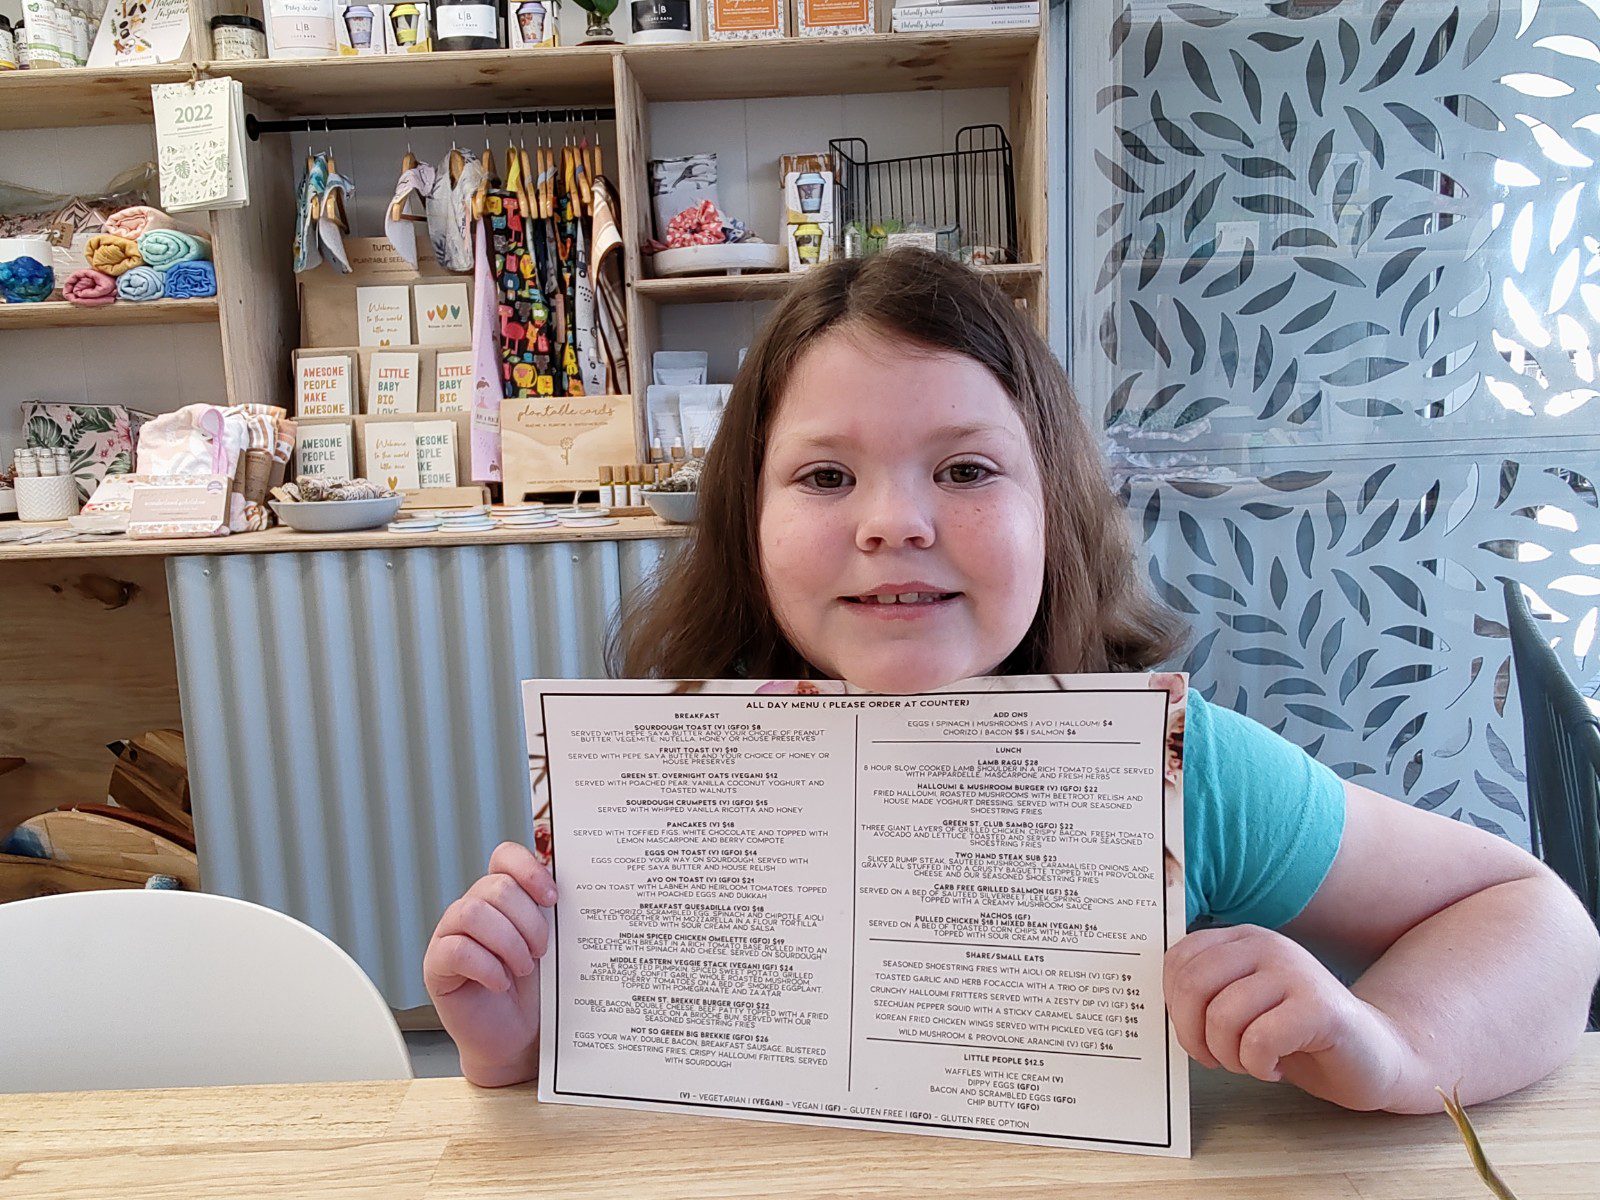 Naturally Inspired
L|B
L|B
2022
turq
PLANTABLE SEED CARDS
Welcome
to the world
little one
AWESOME
PEOPLE
MAKE
AWESOME
LITTLE
BABY
BIG
LOVE
LITTLE
BABY
BIG
LOVE
AWESOME
PEOPLE
MAKE
Welcome
AWESOME
PEOPLE
MAKE
AWESOME
plantable cards
ALL DAY MENU ( PLEASE ORDER AT COUNTER)
BREAKFAST
SOURDOUGH TOAST (V) (GFO) $8
SERVED WITH PEPE SAYA BUTTER AND YOUR CHOICE OF PEANUT
BUTTER, VEGEMITE, NUTELLA, HONEY OR HOUSE PRESERVES
FRUIT TOAST (V) $10
SERVED WITH PEPE SAYA BUTTER AND YOUR CHOICE OF HONEY OR
HOUSE PRESERVES
GREEN ST. OVERNIGHT OATS (VEGAN) $12
SERVED WITH POACHED PEAR, VANILLA COCONUT YOGHURT AND
TOASTED WALNUTS
SOURDOUGH CRUMPETS (V) (GFO) $15
SERVED WITH WHIPPED VANILLA RICOTTA AND HONEY
PANCAKES (V) $18
SERVED WITH TOFFIED FIGS, WHITE CHOCOLATE AND TOPPED WITH
LEMON MASCARPONE AND BERRY COMPOTE
EGGS ON TOAST (V) (GFO) $14
EGGS COOKED YOUR WAY ON SOURDOUGH, SERVED WITH
PEPE SAYA BUTTER AND HOUSE RELISH
AVO ON TOAST (V) (GFO) $21
AVO ON TOAST WITH LABNEH AND HEIRLOOM TOMATOES, TOPPED
WITH POACHED EGGS AND DUKKAH
BREAKFAST QUESADILLA (VO) $18
CRISPY CHORIZO, SCRAMBLED EGG, SPINACH AND CHIPOTLE AIOLI
MELTED TOGETHER WITH MOZZARELLA IN A FLOUR TORTILLA
SERVED WITH SOUR CREAM AND SALSA
INDIAN SPICED CHICKEN OMELETTE (GFO) $19
SPICED CHICKEN BREAST IN A RICH TOMATO BASE ROLLED INTO AN
OMELETTE WITH SPINACH AND CHEESE, SERVED ON SOURDOUGH
MIDDLE EASTERN VEGGIE STACK (VEGAN) (GF) $24
MAPLE ROASTED PUMPKIN, SPICED SWEET POTATO, GRILLED
ASPARAGUS, CONFIT GARLIC WHOLE ROASTED MUSHROOM,
BLISTERED CHERRY TOMATOES ON A BED OF SMOKED EGGPLANT,
TOPPED WITH POMEGRANATE AND ZA'ATAR
GREEN ST. BREKKIE BURGER (GFO) $22
DOUBLE BACON, DOUBLE CHEESE, BEEF PATTY TOPPED WITH A FRIED
EGG AND BBQ SAUCE ON A BRIOCHE BUN, SERVED WITH OUR
SEASONED SHOESTRING FRIES
NOT SO GREEN BIG BREKKIE (GFO) $26
EGGS YOUR WAY, DOUBLE BACON, BREAKFAST SAUSAGE, BLISTERED
TOMATOES, SHOESTRING FRIES, CRISPY HALLOUMI FRITTERS, SERVED
WITH SOURDOUGH
ADD ONS
EGGS | SPINACH | MUSHROOMS | AVO | HALLOUMI $4
CHORIZO | BACON $5 | SALMON $6
LUNCH
LAMB RAGU $28
8 HOUR SLOW COOKED LAMB SHOULDER IN A RICH TOMATO SAUCE SERVED
WITH PAPPARDELLE, MASCARPONE AND FRESH HERBS
HALLOUMI & MUSHROOM BURGER (V) (GFO) $22
FRIED HALLOUMI, ROASTED MUSHROOMS WITH BEETROOT RELISH AND
HOUSE MADE YOGHURT DRESSING, SERVED WITH OUR SEASONED
SHOESTRING FRIES
GREEN ST. CLUB SAMBO (GFO) $22
THREE GIANT LAYERS OF GRILLED CHICKEN, CRISPY BACON, FRESH TOMATO,
AVOCADO AND LETTUCE TOASTED AND SERVED WITH OUR SEASONED
SHOESTRING FRIES
TWO HAND STEAK SUB $23
SLICED RUMP STEAK, SAUTEED MUSHROOMS, CARAMALISED ONIONS AND
GRAVY ALL STUFFED INTO A CRUSTY BAGUETTE TOPPED WITH PROVOLONE
CHEESE AND OUR SEASONED SHOESTRING FRIES
CARB FREE GRILLED SALMON (GF) $26
SERVED ON A BED OF SAUTEED SILVERBEET, LEEK, SPRING ONIONS AND FETA
TOPPED WITH A CREAMY MUSHROOM SAUCE
NACHOS (GF)
PULLED CHICKEN $18 | MIXED BEAN (VEGAN) $16
SERVED ON A BED OF TOASTED CORN CHIPS WITH MELTED CHEESE AND
TOPPED WITH SOUR CREAM AND AVO
SHARE/SMALL EATS
SEASONED SHOESTRING FRIES WITH AIOLI OR RELISH (V) (GF) $9
TOASTED GARLIC AND HERB FOCACCIA WITH A TRIO OF DIPS (V) $12
CRUNCHY HALLOUMI FRITTERS SERVED WITH A ZESTY DIP (V) (GF) $14
SZECHUAN PEPPER SQUID WITH A STICKY CARAMEL SAUCE (GF) $15
KOREAN FRIED CHICKEN WINGS SERVED WITH PICKLED VEG (GF) $16
WILD MUSHROOM & PROVOLONE ARANCINI (V) (GF) $16
LITTLE PEOPLE $12.5
WAFFLES WITH ICE CREAM (V)
DIPPY EGGS (GFO)
BACON AND SCRAMBLED EGGS (GFO)
CHIP BUTTY (GFO)
(V) - VEGETARIAN | (VEGAN) - VEGAN | (GF) - GLUTEN FREE | (GFO) - GLUTEN FREE OPTION